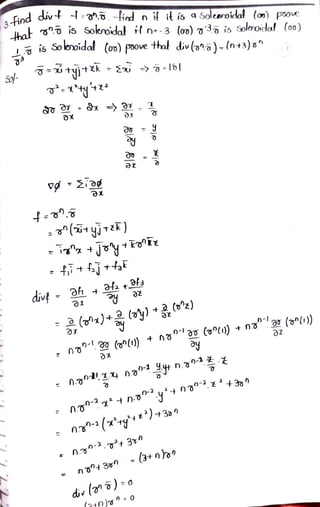 3. find div f f = r^n. r̄ find n if it is a Solenoidal (oo) prove
that r^n. r̄ is Solenoidal if n=-3 (oo) r^-3 r̄ is Solenoidal (oo)
1/r³ r̄ is Solenoidal (oo) prove that div (r^n. r̄) = (n+3) r^n
Sol:- r̄ = xi + yj + zk = Σxi ⇒ r = |r̄|
r² = x²+y²+z²
2r ∂r/∂x = 2x ⇒ ∂r/∂x = x/r
∂r/∂y = y/r
∂r/∂z = z/r
∇φ = Σi ∂φ/∂x
f = r^n. r̄
= r^n (xi + yj + zk)
= i r^n x + j r^n y + k r^n z
= f₁i + f₂j + f₃k
div f = ∂f₁/∂x + ∂f₂/∂y + ∂f₃/∂z
= ∂/∂x (r^n x) + ∂/∂y (r^n y) + ∂/∂z (r^n z)
= n r^n-1. ∂r/∂x (r^n(1)) + n r^n-1 ∂r/∂y (r^n(1)) + n r^n-1 ∂r/∂z (r^n(1))
= n. r^n-1. x/r. x + n r^n-1 y/r. y + n. r^n-1 z/r. z
= n r^n-2. x² + n. r^n-2. y² + n r^n-2. z² + 3r^n
= n r^n-2 (x²+y²+z²) + 3r^n
= n. r^n-2. r² + 3r^n
= n r^n + 3r^n = (3+n) r^n
div (r^n r̄) = 0
(3+n) r^n = 0